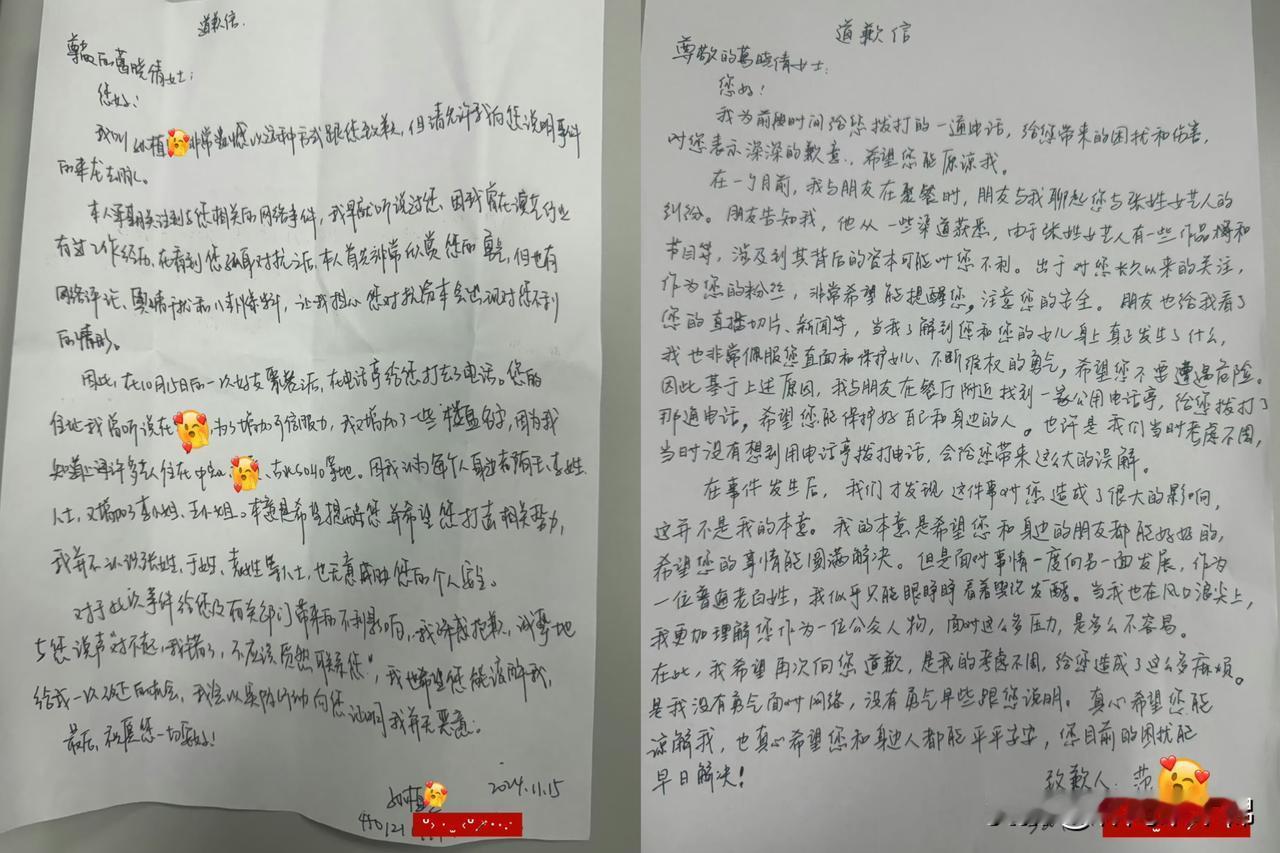 道歉信
尊敬的葛晓倩女士：
您好！
我叫 植 非常遗憾以这种方式跟您致歉，但请允许我向您说明事件
的来龙去脉。
本人早期关注到与您相关的网络事件，我早就听说过您，因我曾在演艺行业
有过工作经历，在看到您 对抗之后，本人首先非常欣赏您的勇气，但也有
网络评论、舆情干扰和八卦爆料，让我担心您对抗资本会出现对您不利
的情形。
因此，在10月15日的一次好友聚餐之后，在电话亭给您打去了电话。您的
住址我曾听说在 ，为了增加可信服力，我又增加了一些楼盘名字，因为我
知道 许多艺人住在中 、 SOHO等地。因我认为每个人身边都有于王、李姓
人士，又增加了李小姐、王小姐。本意是希望提醒您并希望您打击相关势力，
我并不认识张姓、于姓、袁姓等人士，也无意威胁您的个人安全。
对于此次事件给您及有关部门带来的不利影响，我深感抱歉，诚挚地
与您说声“对不起，我错了，不应该贸然联系您”，我也希望您能谅解我，
给我一次改过的机会，我会以实际行动向您证明我并无恶意。
最后，祝愿您一切安好！
植
2024.11.15
450121
道歉信
尊敬的葛晓倩女士：
您好！
我为前段时间给您拨打的一通电话，给您带来的困扰和伤害，
对您表示深深的歉意，希望您能原谅我。
在一个月前，我与朋友在聚餐时，朋友与我聊起您与张姓女艺人的
纠纷。朋友告知我，他从一些渠道获悉，由于张姓女艺人有一些作品播和
节目等，涉及到其背后的资本可能对您不利。出于对您长久以来的关注，
作为您的粉丝，非常希望能提醒您，注意您的安全。朋友也给我看了
您的直播切片、新闻等，当我了解到您和您的女儿身上真正发生了什么，
我也非常佩服您直面和保护女儿、不断维权的勇气，希望您不要遭遇危险。
因此基于上述原因，我与朋友在餐厅附近找到一家公用电话亭，给您拨打了
那通电话，希望您能保护好自己和身边的人。也许是我们当时考虑不周，
当时没有想到用电话亭拨打电话，会给您带来这么大的误解。
在事件发生后，我们才发现这件事对您造成了很大的影响，
这并不是我的本意。我的本意是希望您和身边的朋友都能好好的，
希望您的事情能圆满解决。但是面对事情一度向另一面发展，作为
一位普通老百姓，我似乎只能眼睁睁看着舆论发酵。当我也在风口浪尖上，
我更加理解您作为一位公众人物，面对这么多压力，是多么不容易。
在此，我希望再次向您道歉，是我的考虑不周，给您造成了这么多麻烦。
是我没有勇气面对网络，没有勇气早些跟您说明。真心希望您能
谅解我，也真心希望您和身边人都能平平安安，您目前的困扰能
早日解决！
致歉人：莎